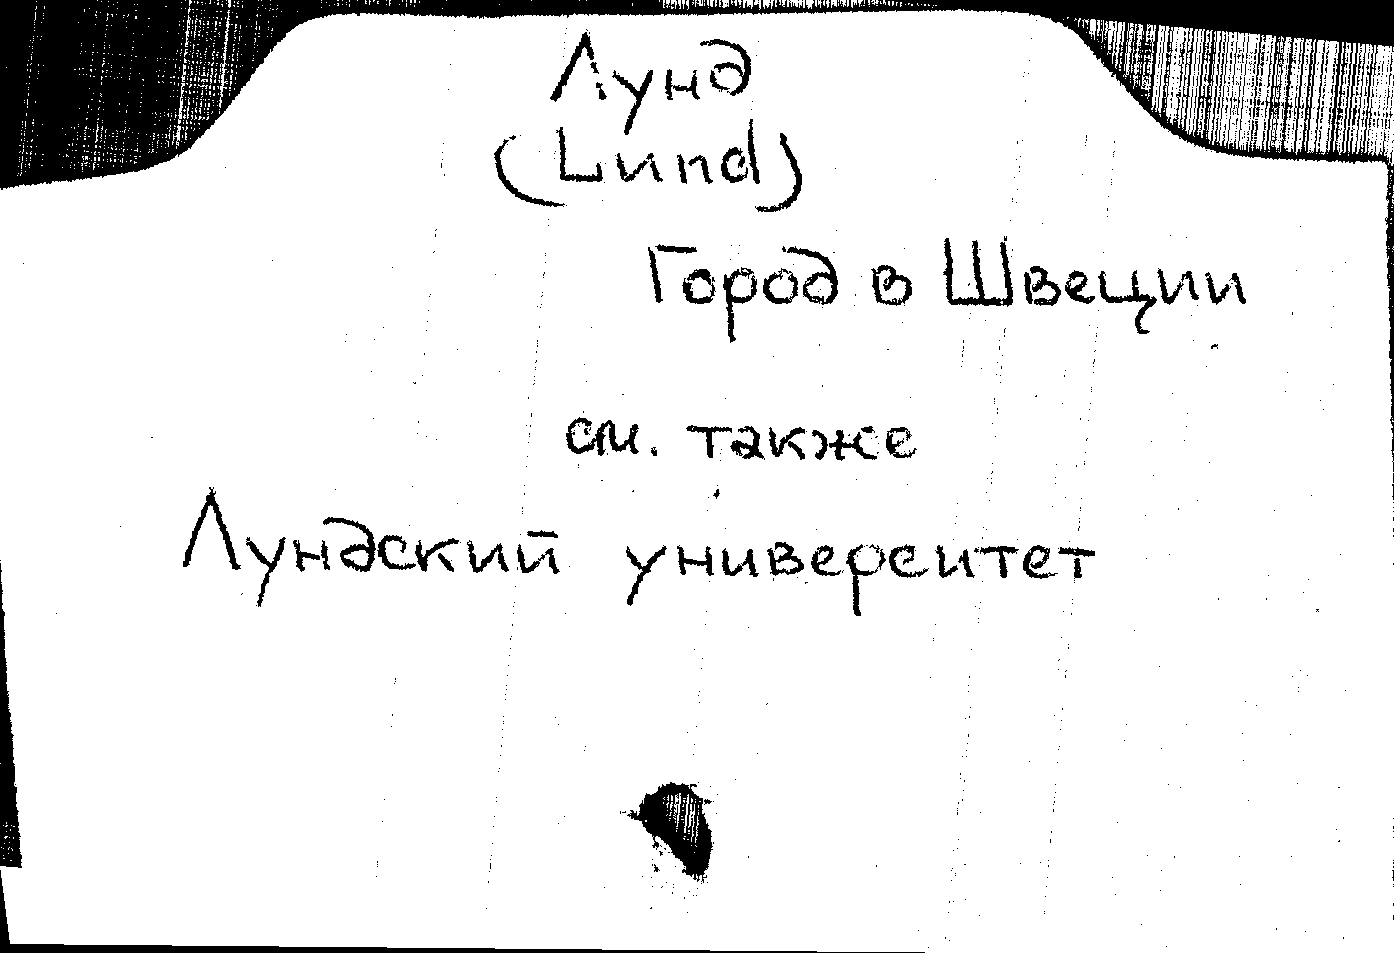 Лунд
(Lund)
Город в Швеции
см. также
Лундский университет